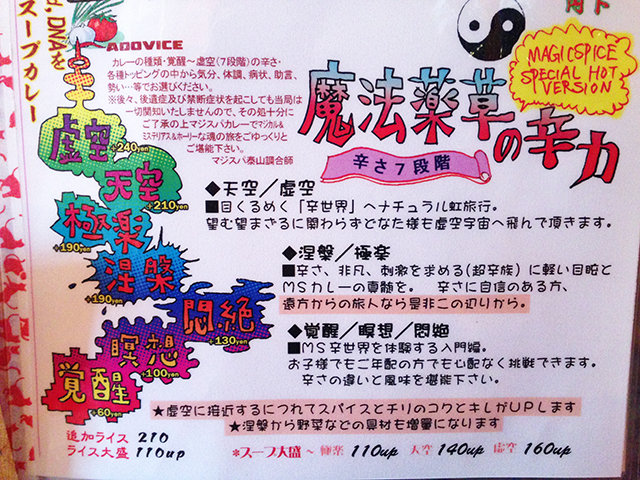 DNAを
スープカレー
ADOVICE
カレーの種類・覚醒～虚空(7段階)の辛さ・
各種トッピングの中から気分、体調、病状、助言、
勢い…等でお選びください。
※後々、後遺症及び禁断症状を起こしても当局は
一切関知いたしませんので、その処十分に
ご了承の上マジスパカレーでマジカル&
ミステリアス&ホーリーな魂の旅をごゆっくりと
ご堪能下さい。
マジスパ泰山調合師
MAGICSPICE
SPECIAL HOT
VERSION
魔法薬草
の辛力
辛さ7段階
虚空
+240yen
天空
+210yen
極楽
+190yen
涅槃
+190yen
悶絶
+130yen
瞑想
+100yen
覚醒
+60yen
◆天空/虚空
■目くるめく「辛世界」へナチュラル虹旅行。
望む望まざるに関わらずどなた様も虚空宇宙へ飛んで頂きます。
◆涅槃/極楽
■辛さ、非凡、刺激を求める(超辛族)に軽い目眩と
MSカレーの真髄を。 辛さに自信のある方、
遠方からの旅人なら是非この辺りから。
◆覚醒/瞑想/悶絶
■MS辛世界を体験する入門編。
お子様でもご年配の方でも心配なく挑戦できます。
辛さの違いと風味を堪能下さい。
★虚空に接近するにつれてスパイスとチリのコクとキレがUPします
★涅槃から野菜などの具材も増量になります
追加ライス 210
ライス大盛 110up
*スープ大盛～極楽 110up 天空 140up 虚空 160up